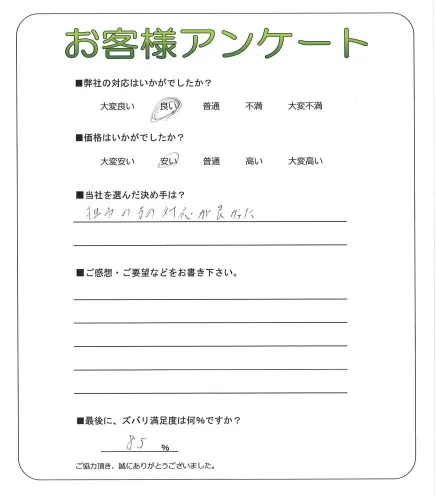 お客様アンケート
■弊社の対応はいかがでしたか？
大変良い 良い 普通 不満 大変不満
■価格はいかがでしたか？
大変安い 安い 普通 高い 大変高い
■当社を選んだ決め手は？
担当の方の対応が良かった
■ご感想・ご要望などをお書き下さい。
■最後に、ズバリ満足度は何%ですか？
85 %
ご協力頂き、誠にありがとうございました。